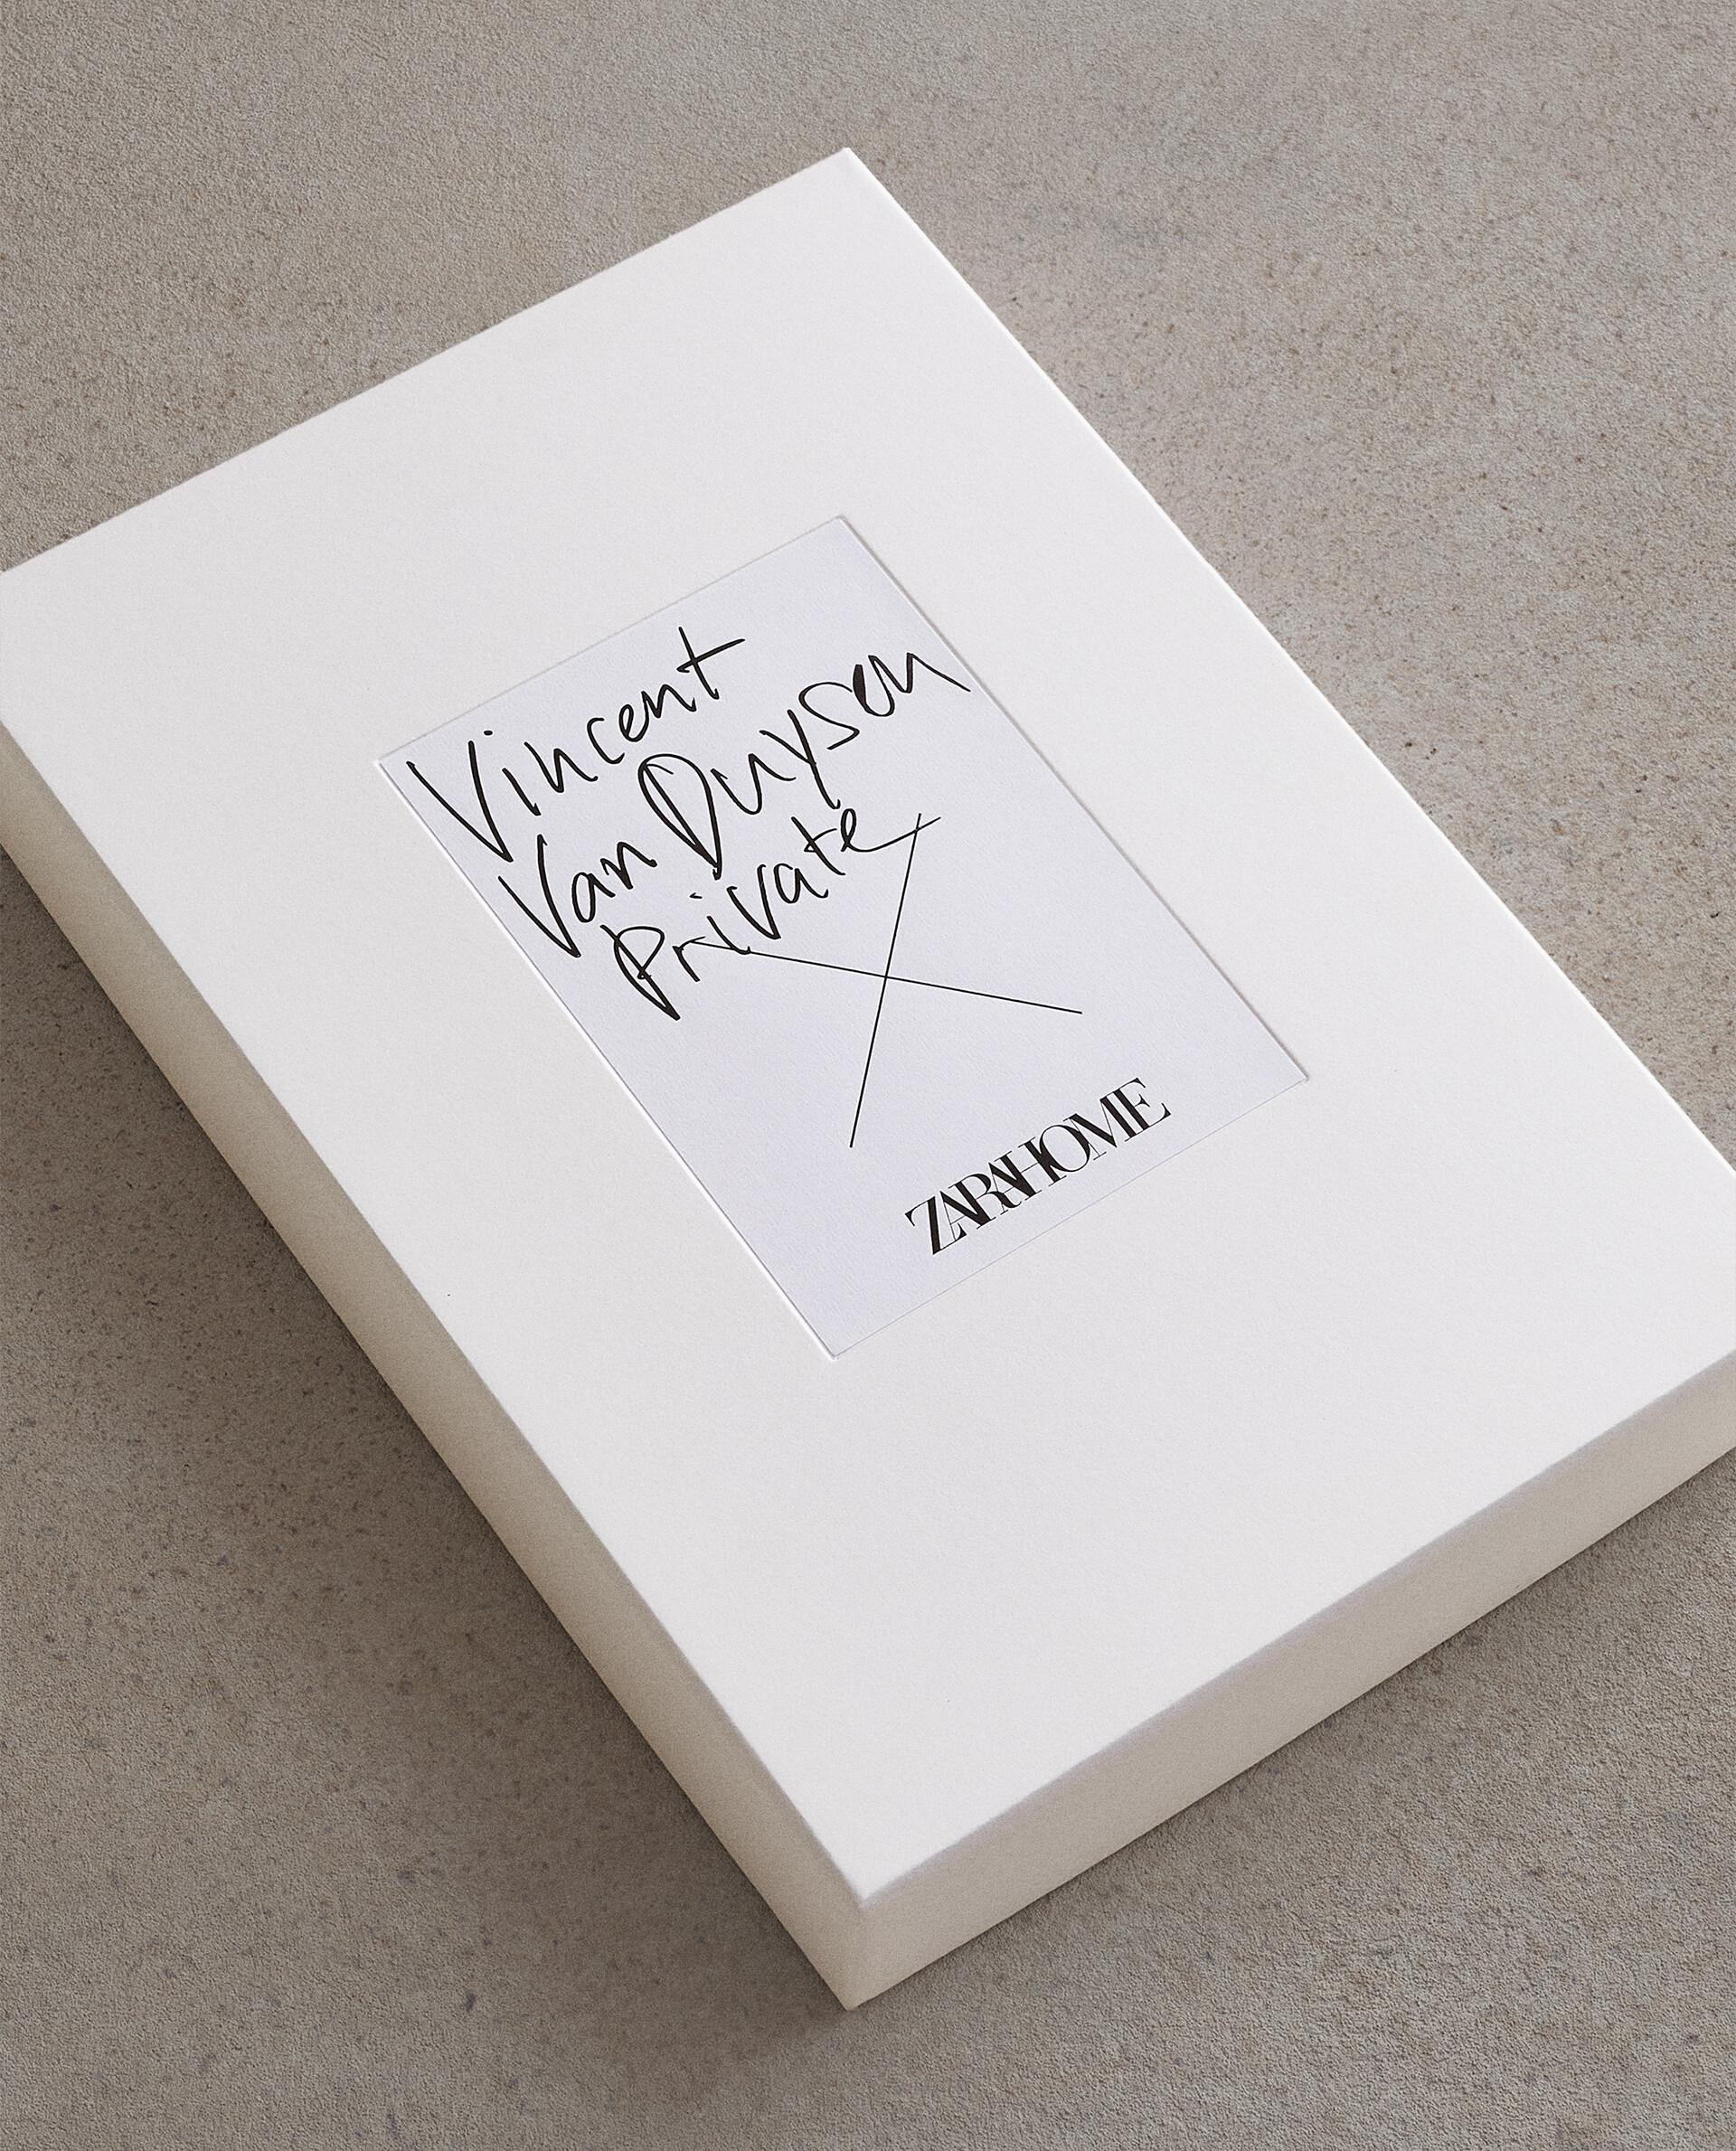 Vincent
Van Duysen
Private
X
ZARAHOME